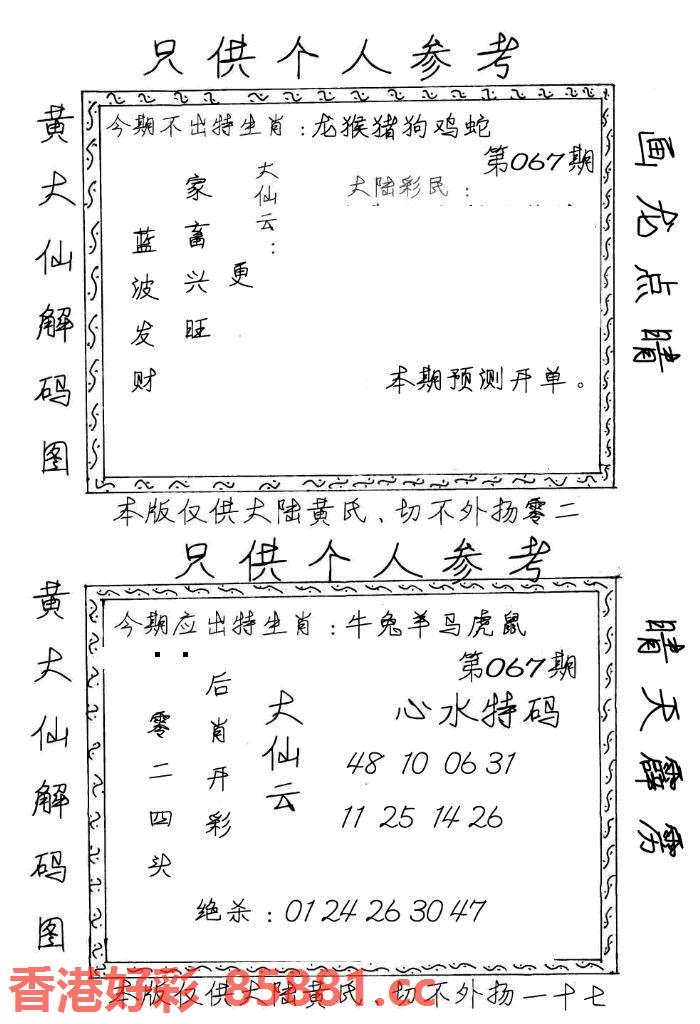 只供个人参考
黄大仙解码图
今期不出特生肖：龙猴猪狗鸡蛇
第067期
大陆彩民：
大仙云：
更
家畜兴旺
蓝波发财
本期预测开单。
画龙点睛
本版仅供大陆黄氏、切不外扬零二
只供个人参考
黄大仙解码图
今期应出特生肖：牛兔羊马虎鼠
第067期
心水特码
大仙云
后肖开彩
零二四头
48 10 06 31
11 25 14 26
绝杀：01 24 26 30 47
晴天霹雳
香港好彩 85881.cc
本版仅供大陆黄氏、切不外扬一十七